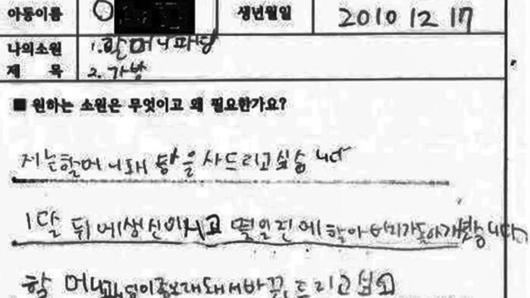 아동이름 생년월일 2010 12 17
나의소원 1.할머니패딩
제 목 2.가방
■ 원하는 소원은 무엇이고 왜 필요한가요?
저는할머니돼 을사드리고싶습니다
1달 뒤에생신이시고 몇일전에할아버지가돌아가셨습니다
할머니패딩이 바꿔드리고싶고